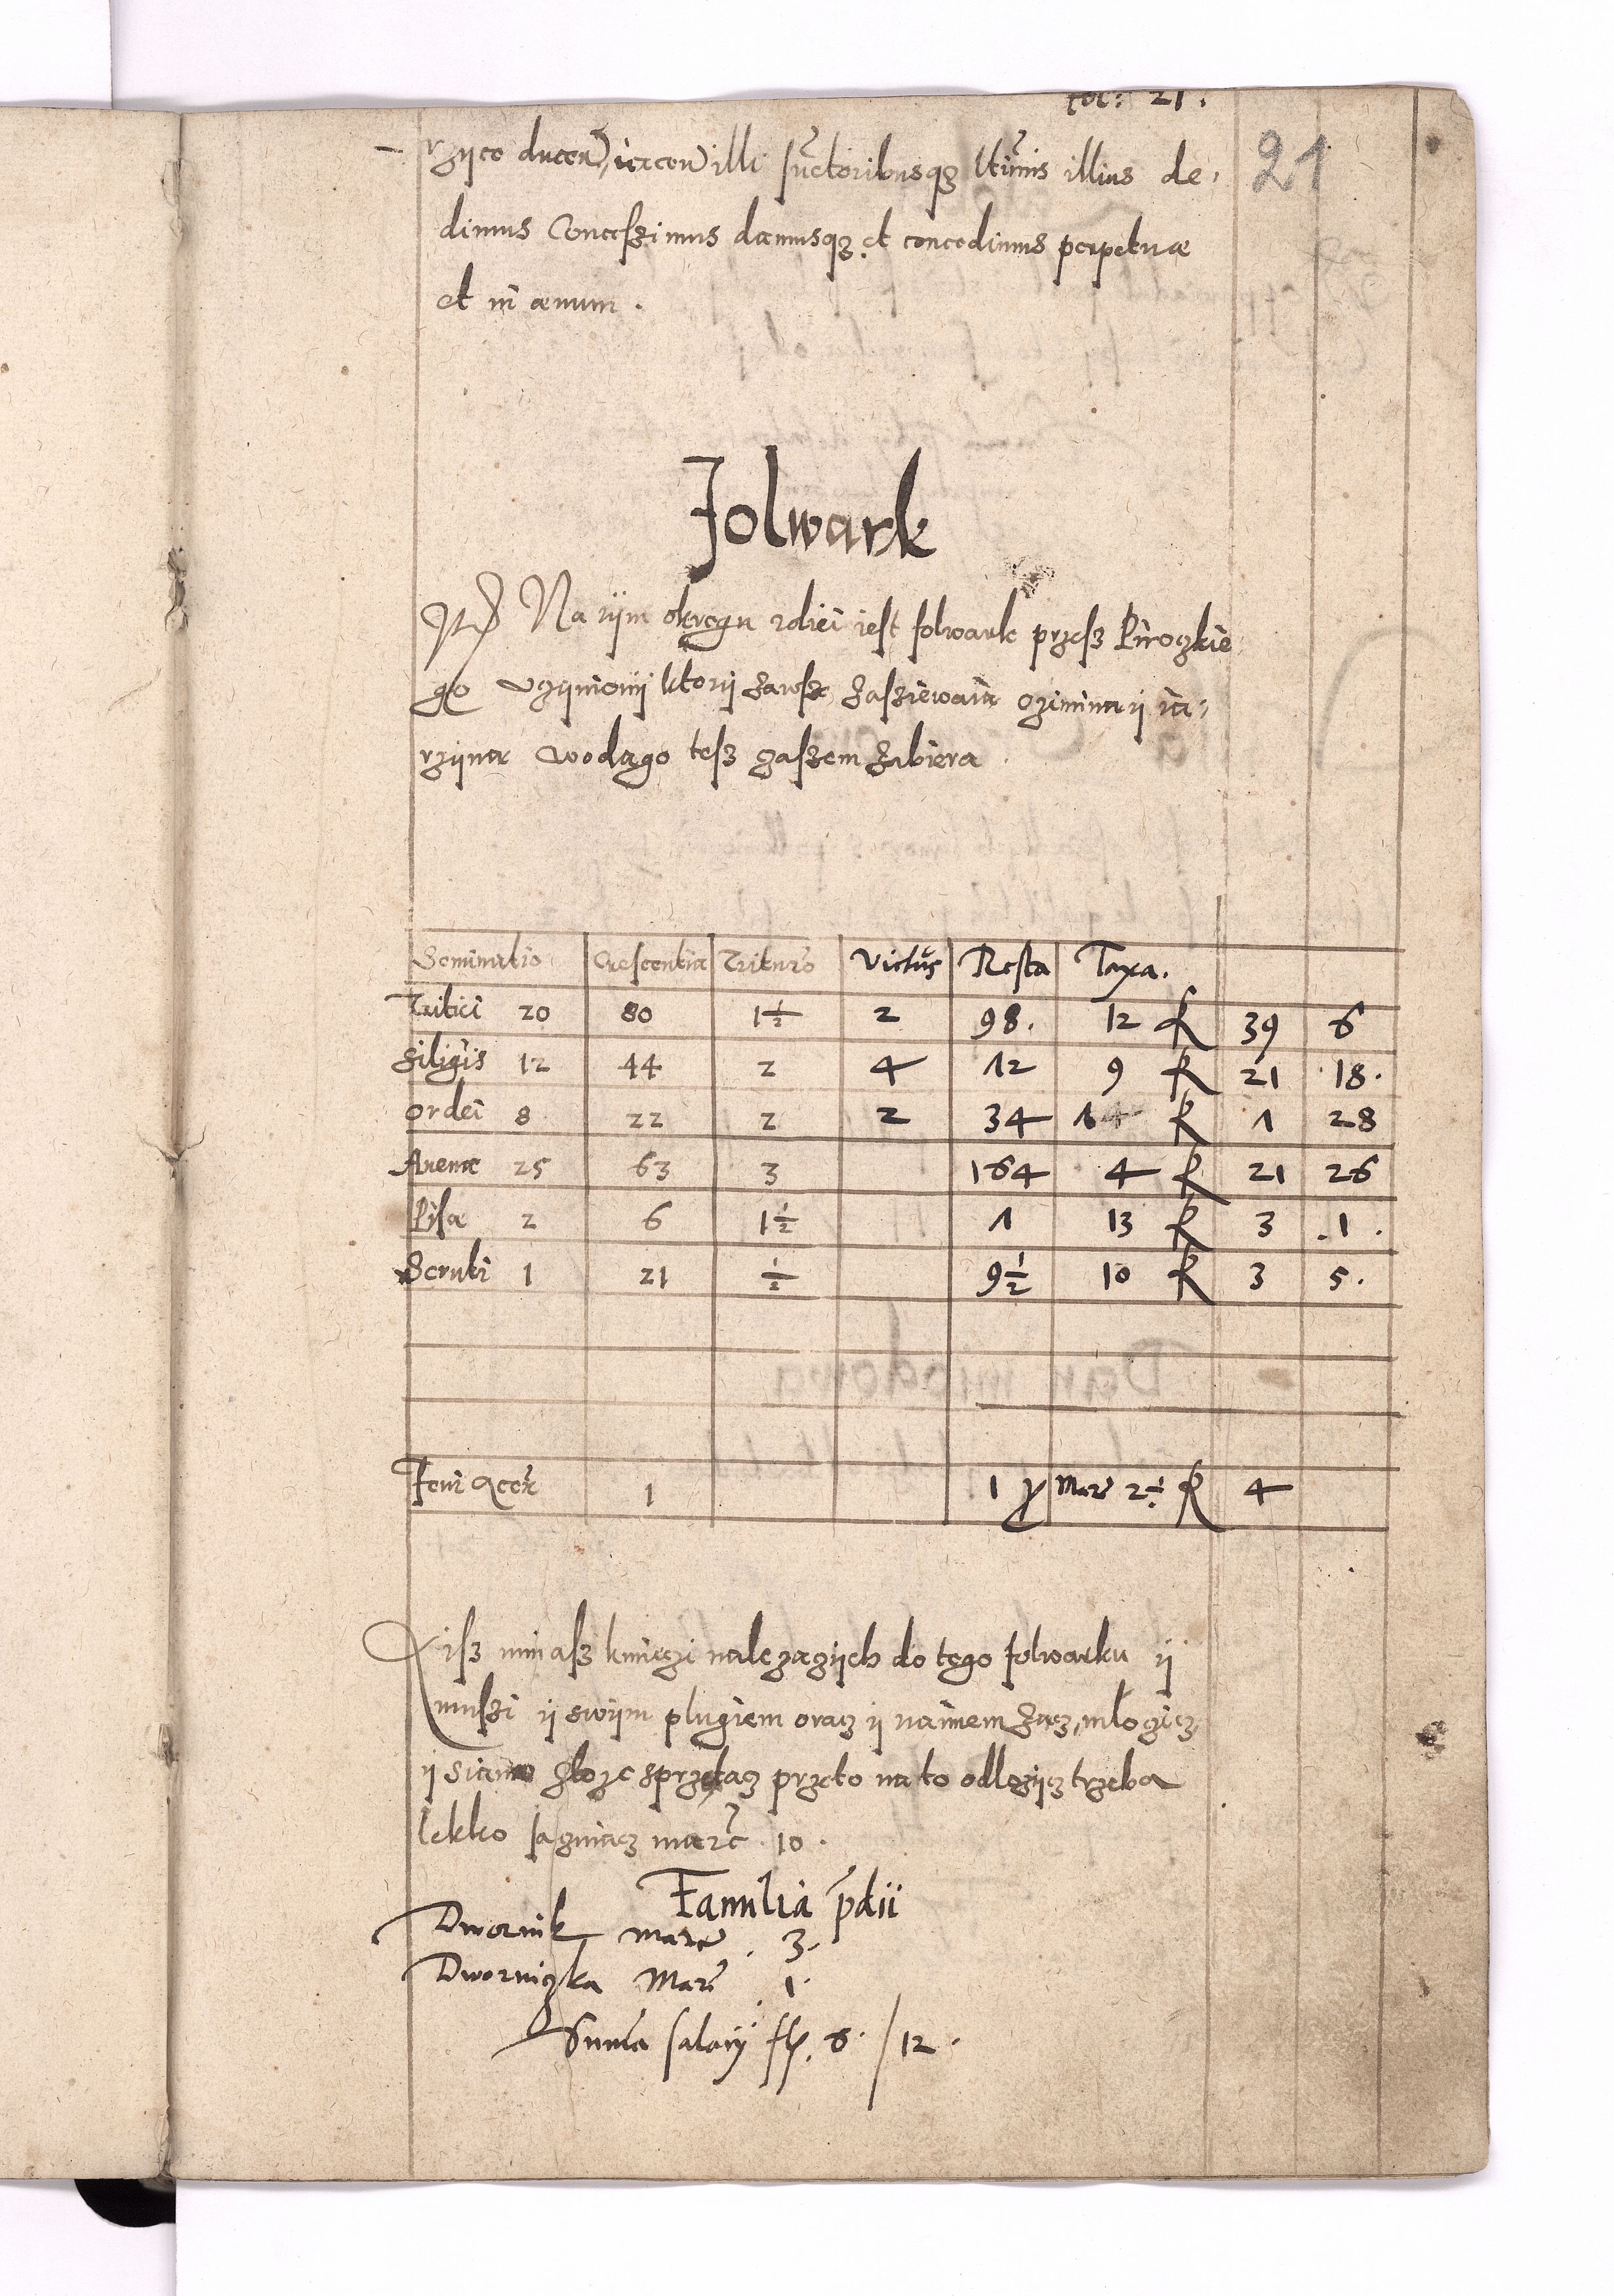 fol: 21.
21
rzyco ducen), iacen) illi suc̃toribusqȝ ltim̃is illius de,
dimus Concessimus damusqȝ et concedimus perpetuæ
et in æuum.
Folwark
Na tÿm okręgu zdiei iest folwark przesz Piroczkie
go vczÿnionÿ ktorÿ zawsze zasziewaią oziminaÿ ia,
rzÿna wodągo tesz czaszem zabiera
Seminatio Crescentia Triturõ Victus Resta Taxa.
Tritici 20 80 1½ 2 98. 12 R 39 6
Siliginis 12 44 2 4 12 9 R 21 18.
Ordei 8 22 2 2 34 14 R 1 28
Auenæ 25 63 3 164 4 R 21 26
Pisæ 2 6 1½ 1 13 R 3 .1.
Scruti 1 21 ½ 9½ 10 R 3 5.
Feni acer 1 1 p Marc 2½ R 4
Isz mii asz kmieczi nalezączÿch do tego folwarku ÿ
muszi ÿ swÿm plugiem oracz ÿ naimem zącz, mlocicz,
ÿ siano zboze sprzętacz przeto na to odlozÿcz trzeba
lekko saczuiacz marc̃ 10.
Familia p̃dii
Dwornik marc 3.
Dworniczka Marc 1.
Sum̃a salarÿ fl. 6. / 12.